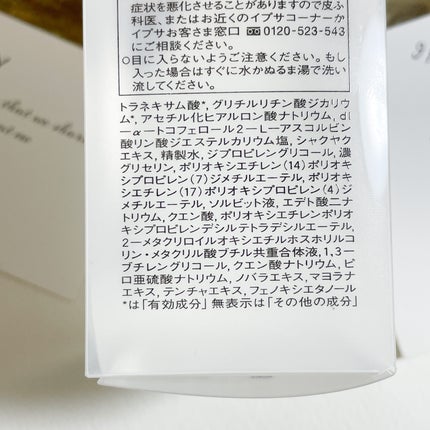 症状を悪化させることがありますので皮ふ
科医、またはお近くのイプサコーナーか
イプサお客さま窓口 ☎0120-523-543
にご相談ください。
○目に入らないようご注意ください。もし
入った場合はすぐに水かぬるま湯で洗い
流してください。
トラネキサム酸*, グリチルリチン酸ジカリウ
ム*, アセチル化ヒアルロン酸ナトリウム, dl
-α-トコフェロール2-L-アスコルビン
酸リン酸ジエステルカリウム塩, シャクヤク
エキス, 精製水, ジプロピレングリコール, 濃
グリセリン, ポリオキシエチレン(14)ポリオキ
シプロピレン(7)ジメチルエーテル, ポリオ
キシエチレン(17)ポリオキシプロピレン(4)ジ
メチルエーテル, ソルビット液, エデト酸二ナ
トリウム, クエン酸, ポリオキシエチレンポリオ
キシプロピレンデシルテトラデシルエーテル,
2-メタクリロイルオキシエチルホスホリルコ
リン・メタクリル酸ブチル共重合体液, 1,3-
ブチレングリコール, クエン酸ナトリウム, ピ
ロ亜硫酸ナトリウム, ノバラエキス, マヨラナ
エキス, テンチャエキス, フェノキシエタノール
*は「有効成分」 無表示は「その他の成分」